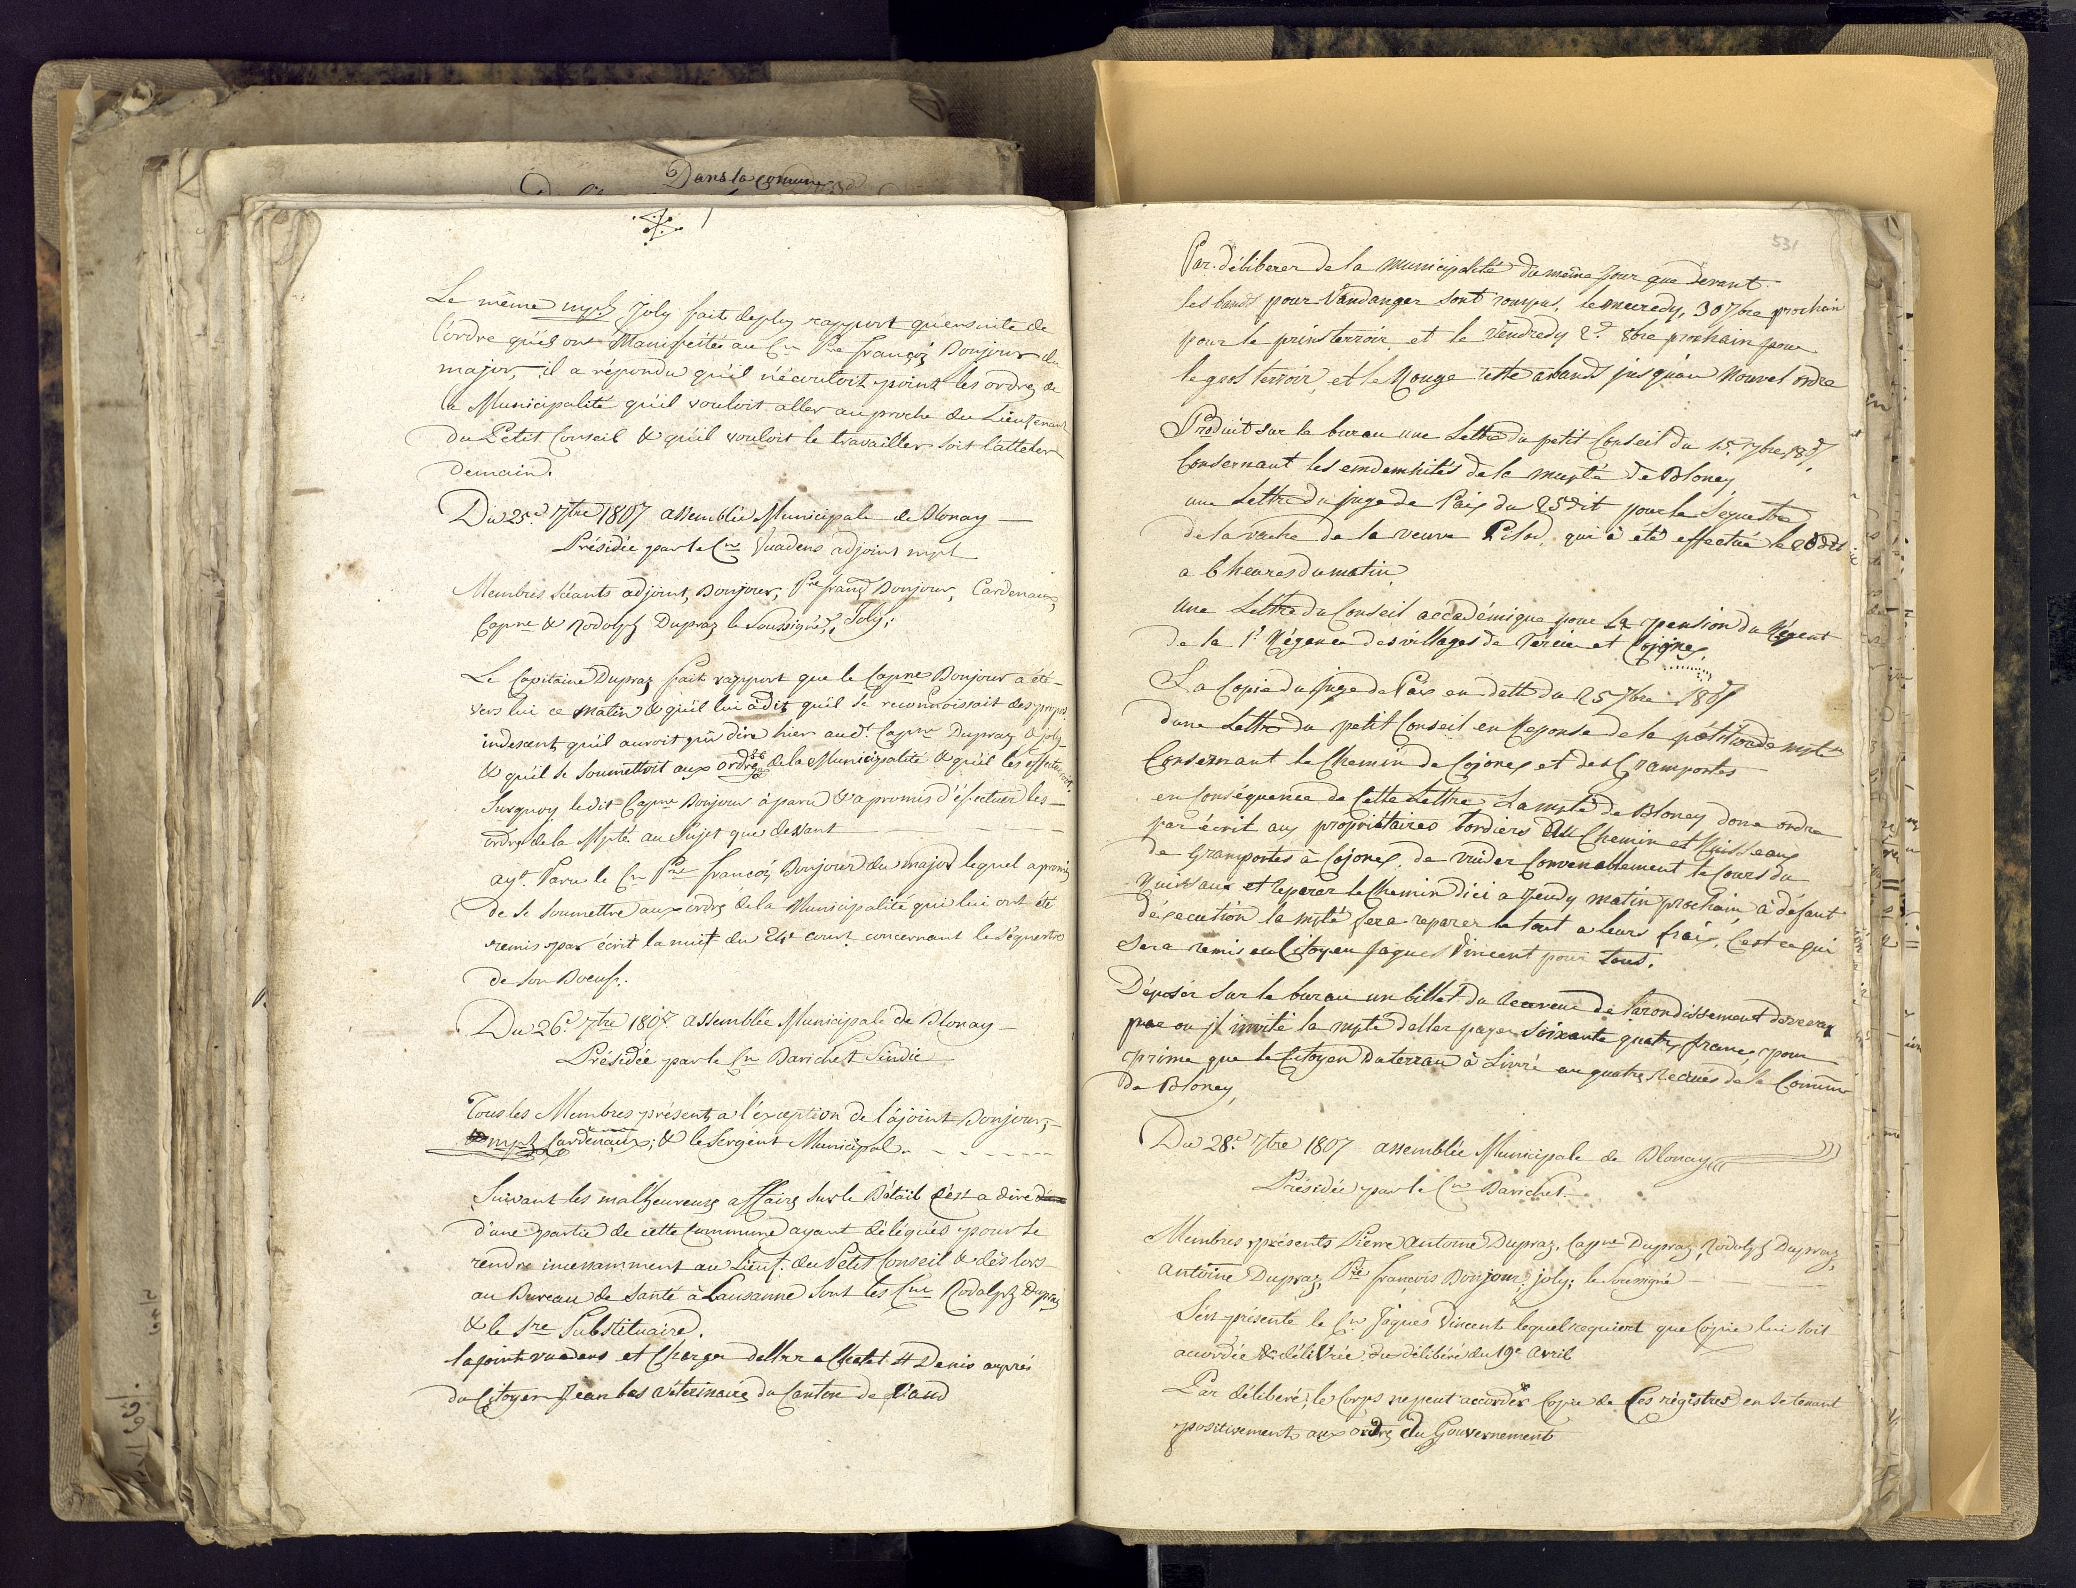 Dans la comune
Le même mpl Joly fait deplus rapport qu'ensuite de
l'ordre qu'ils ont Manifestée au Cn Pre françois Bonjour du
major, il a répondu qu'il n'écoutoit point les ordres de
la Municipalité qu'il vouloit aller au proche du Lieutenant
du Petit Conseil & qu'il vouloit le travailler soit l'atteler
demain.
Du 25e 7bre 1807 assemblée Municipale de Blonay
Présidée par le Cn Vuadens adjoint mpl
Membres séants adjoint, Bonjour, Pre franç Bonjour, Cardenaux,
Capne & Rodolph Dupraz le Soussigné, Joly;
Le Capitaine Dupraz fait rapport que le Capne Bonjour a été
vers lui ce matin & qu'il lui à dit qu'il se reconnoissait des propos
indesent qu'il auroit pû dire hier au dt Capne Dupraz & joly
& qu'il se soumettoit aux ordres de la Municipalité & qu'il les effectueroit.
Surquoy le dit Capne Bonjour à paru & a promis d'éfectuer les
ordres de la Mpté au sujet que devant
ayt Paru le Cn Pre françois Bonjour du major lequel a promis
de se soumettre aux ordres de la Municipalité qui lui ont été
remis par écrit la nuit du 24e court concernant le Séquestre
de son Boeuf.
Du 26e 7bre 1807 assemblée Municipale de Blonay
Présidée par le Cn Barichet Sindic
Tous les Membres présents a l'éxception de l'ajoint Bonjour,
mpl Cardenaux; & le Sergent Municipal.
Suivant les malheureuses affaires sur le Bétail c'est a dire
d'une partie de cette Commune ayant délégués pour se
rendre incessamment au Lieut. du Petit Conseil & dès lors
au Bureau de Santé à Lausanne sont les Cns Rodolph Dupraz
& le Sre Substituaire.
lajoint vuadens et Charger daller a Chatel St Denis auprés
du Citoyen Jean bas véterinaire du Canton de Vaud
531
Par déliberer de la municipalité du même jour que devant
les bands pour Vandanger sont rompus, le mecredy, 30 7bre prochain
pour le prins terroir et le vendredy 2d 8bre prochain pour
le gros terroir, et le Rouge reste a bands jusqu'au Nouvel ordre
Produit sur le bureau une Lettre du petit Conseil du 15 7bre 1807
Consernant les endemnités de la mupté de Bloney
une Lettre du juge de Paix du 25 dit pour le Sequestre
de la vache de la veuve Pilod, qui à été effectué le 26 dit
a 6 heures du matin
une Lettre du Conseil accadémique pour la pension du Régent
de la 1e Régence des villages de Tercier et Cojones
La Copie du Juge de Paix en datte du 25 7bre 1807
dune Lettre du petit Conseil en Reponse de la pétition de mpté
Consernant le Chemin de Cojones et des Gramportes
en Conséquence de Cette Lettre La mpté de Bloney done ordre
par écrit aux propriétaires bordiers du Chemin et Ruisseaux
de Gramportes à Cojones, de vuider Convenablement le Cours du
Ruisseau et reparer le Chemin dici a jeudy matin prochain à défaut
déxecution la mpté fera reparer le tout a leurs frais, C'est ce qui
sera remis au Citoyen Jaques Vincent pour tous.
Déposer sur le bureau un billet du Receveur de l'arondissement de vevey
par ou jl invite la mpté daller payer soixante quatre francs, pour
prime que le Citoyen Duterrau à Livré au quatre Recrues de la Commune
de Bloney,
Du 28e 7bre 1807 assemblée Municipale de Blonay
Présidée par le Cn Barichet
Membres présents Pierre antoine Dupraz, Capne Dupraz, Rodolph Dupraz,
antoine Dupraz, Pre françois Bonjour, joly; le Soussigné
S'est présenté le Cn Jaques Vincent lequel requiert que Copie lui soit
accordée & délivrée du délibéré du 19e avril
Par délibéré; le Corps ne peut accorder Copie de Ces régistres en se tenant
positivement aux ordres du Gouvernement